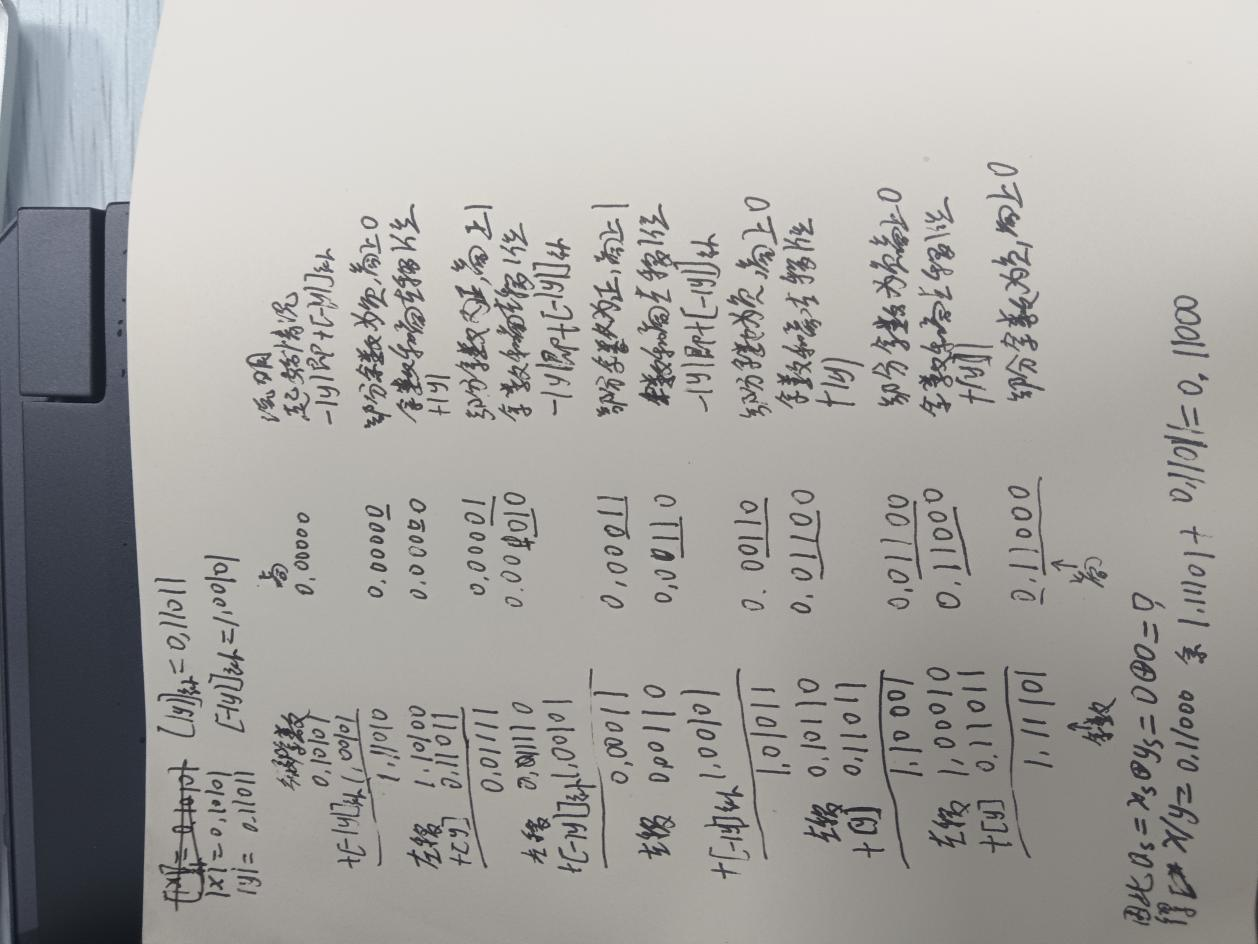 |x|=0.10101 [|y|]补=0.11011
|y|=0.11011 [-|y|]补=1.00101
余数 商 说明
0.10101 0.00000 起始情况
+[-|y|]补 1.00101 -|y|即+[-|y|]补
1.11010 0.00000 部分余数为负,商上0
左移 1.10100 0.00000 余数和商左移1位
+[y] 0.11011 +|y|
0.01111 0.00001 部分余数为正,商上1
左移 0.11110 0.00010 余数和商左移1位
+[-|y|]补 1.00101 -|y|即+[-|y|]补
0.00011 0.00011 部分余数为正,商上1
左移 0.00110 0.00110 余数和商左移1位
+[-|y|]补 1.00101 -|y|即+[-|y|]补
1.01011 0.00110 部分余数为负,商上0
左移 0.10110 0.01100 余数和商左移1位
+[y] 0.11011 +|y|
1.10001 0.01100 部分余数为负商上0
左移 1.00010 0.11000 余数和商左移1位
+[y] 0.11011 +|y|
1.11101 0.11000 部分余数为负,商上0
余数 ↑商
因此 Qs=xs⊕ys=0⊕0=0,
得 x/y=0.11000 余 1.11101+0.11011=0.11000